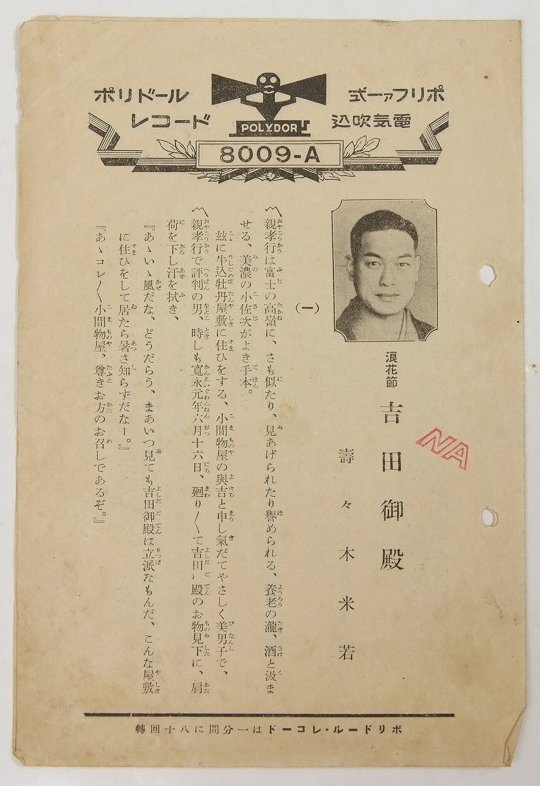 ポリファー式
電氣吹込
ポリドール
レコード
POLYDOR
8009-A
NA
浪花節 吉田御殿
壽々木米若
(一)
〽親孝行は富士の高嶺に、さも似たり、見あげられたり譽められる、養老の瀧、酒と汲ま
せる、美濃の小佐次がよき手本。
玆に牛込牡丹屋敷に住ひをする、小間物屋の與吉と申し氣だてやさしく美男子で、
〽親孝行で評判の男、時しも寛永元年六月十六日、廻り〱て吉田殿のお物見下に、肩
荷を下し汗を拭き、
『あゝいゝ風だな、どうだらう、まあいつ見ても吉田御殿は立派なもんだ、こんな屋敷
に住ひをして居たら暑さ知らずだなー。』
『あゝコレ〱小間物屋、尊きお方のお召しであるぞ。』
ポリドール・レコードは一分間に八十回轉